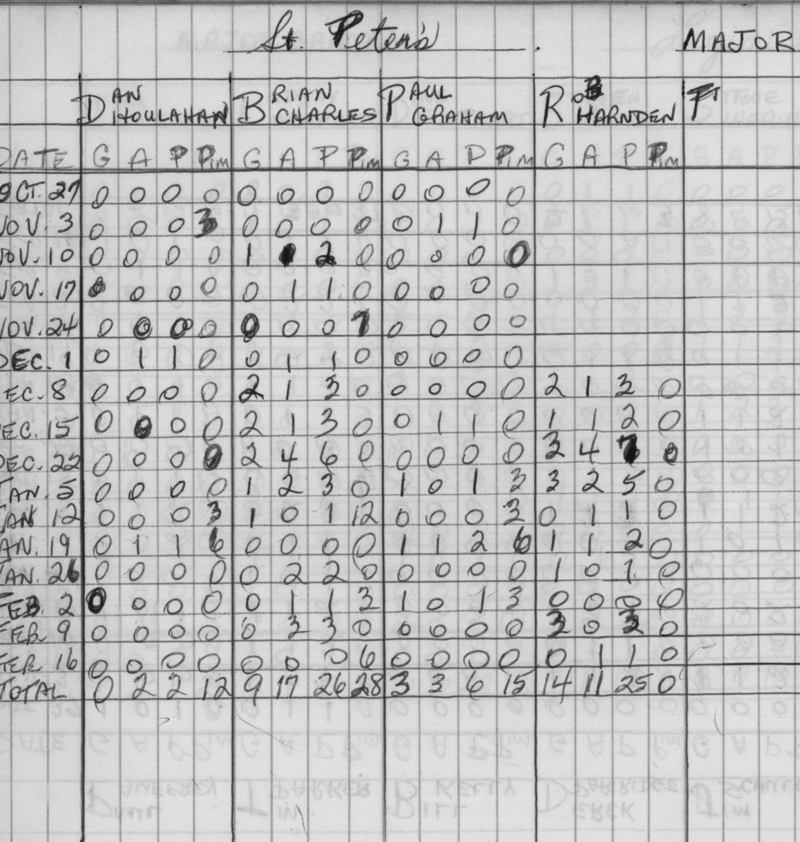 St. Peter's MAJOR
DAN HOULAHAN BRIAN CHARLES PAUL GRAHAM ROB HARNDEN
DATE G A P Pim G A P Pim G A P Pim G A P Pim
OCT. 27 0 0 0 0 0 0 0 0 0 0 0 0
NOV. 3 0 0 0 3 0 0 0 0 0 1 1 0
NOV. 10 0 0 0 0 1 1 2 0 0 0 0 0
NOV. 17 0 0 0 0 0 1 1 0 0 0 0 0
NOV. 24 0 0 0 0 0 0 0 7 0 0 0 0
DEC. 1 0 1 1 0 0 1 1 0 0 0 0 0
DEC. 8 0 0 0 0 2 1 3 0 0 0 0 0 2 1 3 0
DEC. 15 0 0 0 0 2 1 3 0 0 1 1 0 1 1 2 0
DEC. 22 0 0 0 0 2 4 6 0 0 0 0 0 3 4 7 0
JAN. 5 0 0 0 0 1 2 3 0 1 0 1 3 3 2 5 0
JAN 12 0 0 0 3 1 0 1 12 0 0 0 3 0 1 1 0
JAN. 19 0 1 1 6 0 0 0 0 1 1 2 6 1 1 2 0
JAN. 26 0 0 0 0 0 2 2 0 0 0 0 0 1 0 1 0
FEB. 2 0 0 0 0 0 1 1 3 1 0 1 3 0 0 0 0
FEB 9 0 0 0 0 0 3 3 0 0 0 0 0 3 0 3 0
FEB. 16 0 0 0 0 0 0 0 6 0 0 0 0 0 1 1 0
TOTAL 0 2 2 12 9 17 26 28 3 3 6 15 14 11 25 0